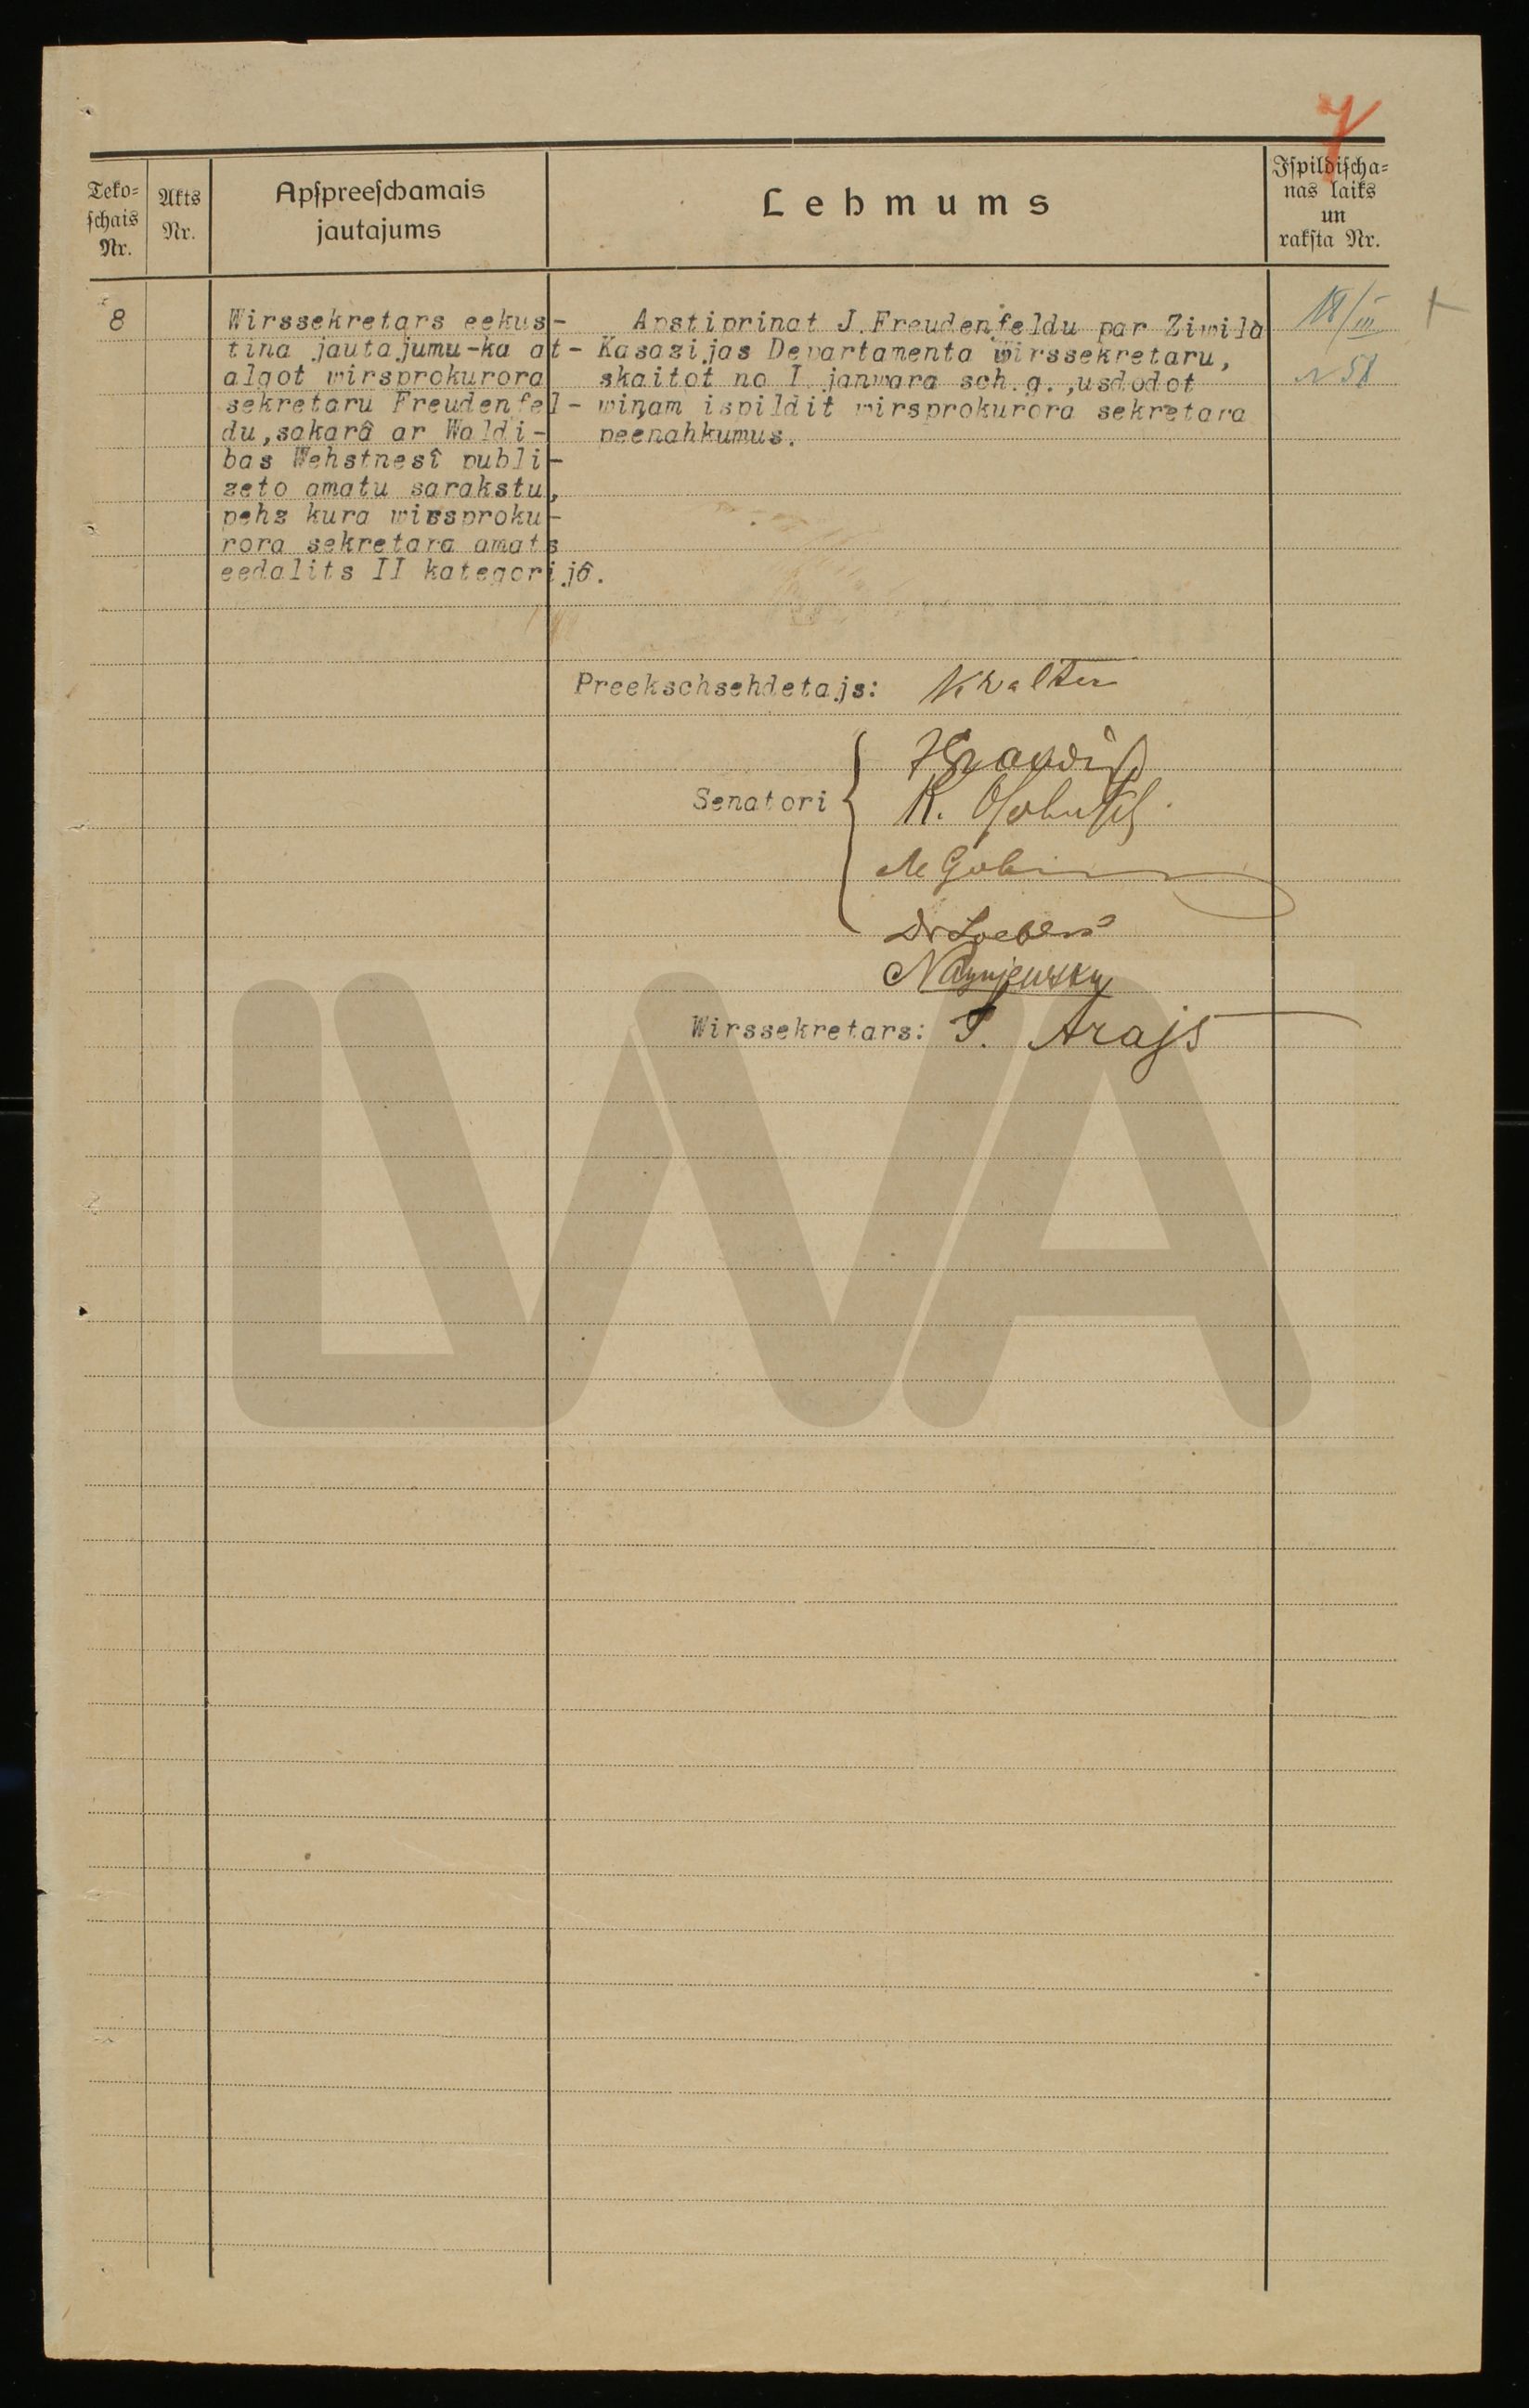 7
Teko=
schais
Nr.
Akts
Nr.
Apspreeschamais
jautajums
Lehmums
Ispildischa=
nas laiks
un
raksta Nr.
8
Wirssekretars eekus-
tina jautajumu-ka at-
algot wirsprokurora
sekretaru Freudenfel-
du,sakarâ ar Waldi-
bas Wehstnesî publi-
zeto amatu sarakstu,
pehz kura wirsproku-
rora sekretara amats
eedalits II kategorijô.
Apstiprinat J.Freudenfeldu par Ziwila
Kasazijas Departamenta wirssekretaru,
skaitot no I janwara sch.g.,usdodot
wiņam ispildit wirsprokurora sekretara
peenahkumus.
18/III
N 58
Preekschsehdetajs: KWalter
Senatori
K. Osolinsch
Dr Loebers
Wirssekretars: J. Arajs
LVVA